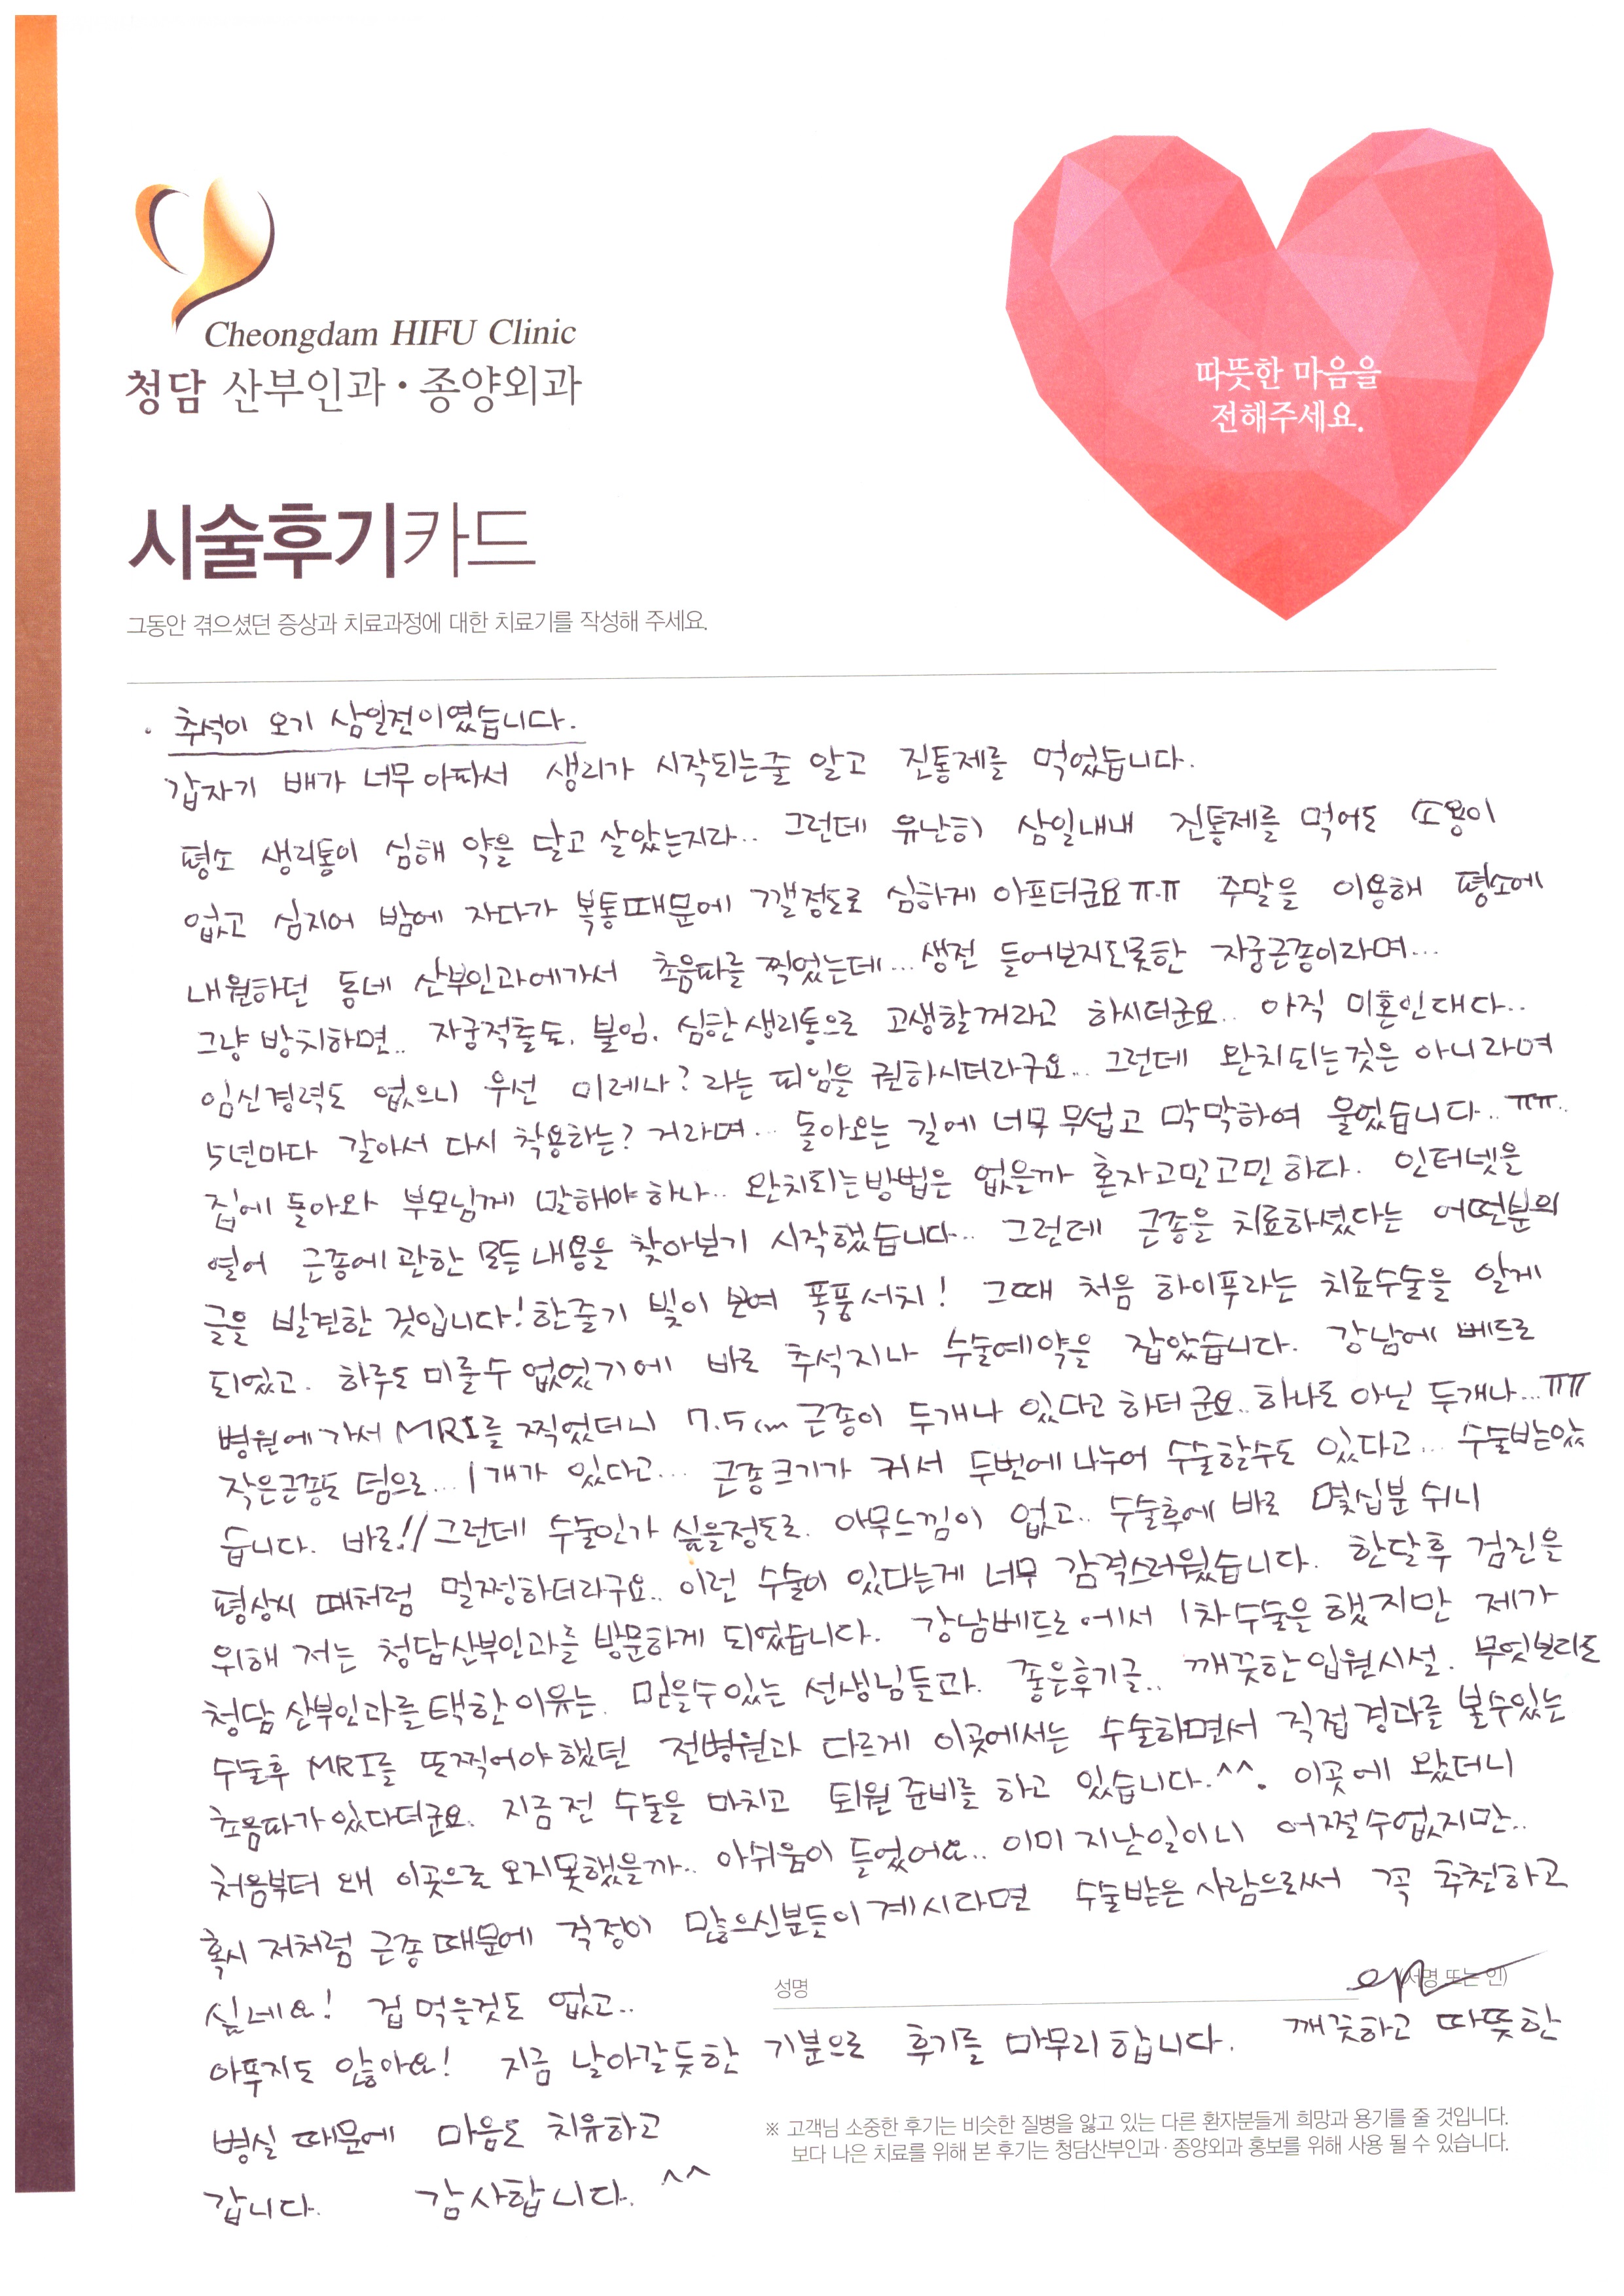 Cheongdam HIFU Clinic
청담 산부인과·종양외과
따뜻한 마음을
전해주세요.
시술후기카드
그동안 겪으셨던 증상과 치료과정에 대한 치료기를 작성해 주세요.
. 추석이 오기 삼일전이였습니다.
갑자기 배가 너무 아파서 생리가 시작되는줄 알고 진통제를 먹었습니다.
평소 생리통이 심해 약을 달고 살았는지라.. 그런데 유난히 삼일내내 진통제를 먹어도 소용이
없고 심지어 밤에 자다가 복통때문에 깰정도로 심하게 아프더군요ㅠ.ㅠ 주말을 이용해 평소에
내원하던 동네 산부인과에가서 초음파를 찍었는데... 생전 들어보지도못한 자궁근종이라며...
그냥 방치하면.. 자궁적출술, 불임, 심한생리통으로 고생할꺼라고 하시더군요.. 아직 미혼인대다..
임신경력도 없으니 우선 미레나? 라는 피임을 권하시더라구요.. 그런데 완치되는것은 아니라며
5년마다 갈아서 다시 착용하는? 거라며.. 돌아오는 길에 너무 무섭고 막막하여 울었습니다..ㅠㅠ..
집에 돌아와 부모님께 말해야하나.. 완치되는방법은 없을까 혼자고민고민 하다. 인터넷을
열어 근종에관한 모든내용을 찾아보기 시작했습니다.. 그런데 근종을 치료하셨다는 어떤분의
글을 발견한 것입니다! 한줄기 빛이 보여 폭풍서치! 그때 처음 하이푸라는 치료수술을 알게
되었고. 하루도 미룰수 없었기에 바로 추석지나 수술예약을 잡았습니다. 강남에 베드로
병원에가서 MRI를 찍었더니 7.5cm 근종이 두개나 있다고 하더군요.. 하나도 아닌 두개나...ㅠㅠ
작은근종도 덤으로... 1개가 있다고... 근종크기가 커서 두번에 나누어 수술할수도 있다고... 수술받았
습니다. 바로!! 그런데 수술인가 싶을정도로. 아무느낌이 없고.. 수술후에 바로 몇십분 쉬니
평상시 때처럼 멀쩡하더라구요.. 이런 수술이 있다는게 너무 감격스러웠습니다. 한달후 검진을
위해 저는 청담산부인과를 방문하게 되었습니다. 강남베드로에서 1차수술을 했지만 제가
청담 산부인과를 택한이유는. 믿을수있는 선생님들과. 좋은후기글.. 깨끗한입원시설. 무엇보다도
수술후 MRI를 또찍어야했던 전병원과 다르게 이곳에서는 수술하면서 직접경과를 볼수있는
초음파가있다더군요. 지금전 수술을 마치고 퇴원준비를 하고 있습니다.^^. 이곳에 왔더니
처음부터 왜 이곳으로 오지못했을까.. 아쉬움이 들었어요.. 이미 지난일이니 어쩔수없지만..
혹시 저처럼 근종때문에 걱정이 많으신분들이계시다면 수술받은 사람으로써 꼭 추천하고
싶네요! 겁먹을것도 없고..
성명 (서명 또는 인)
아푸지도 않아요! 지금 날아갈듯한 기분으로 후기를 마무리합니다. 깨끗하고 따뜻한
병실 때문에 마음도 치유하고
갑니다. 감사합니다. ^^
※ 고객님 소중한 후기는 비슷한 질병을 앓고 있는 다른 환자분들게 희망과 용기를 줄 것입니다.
보다 나은 치료를 위해 본 후기는 청담산부인과·종양외과 홍보를 위해 사용 될 수 있습니다.